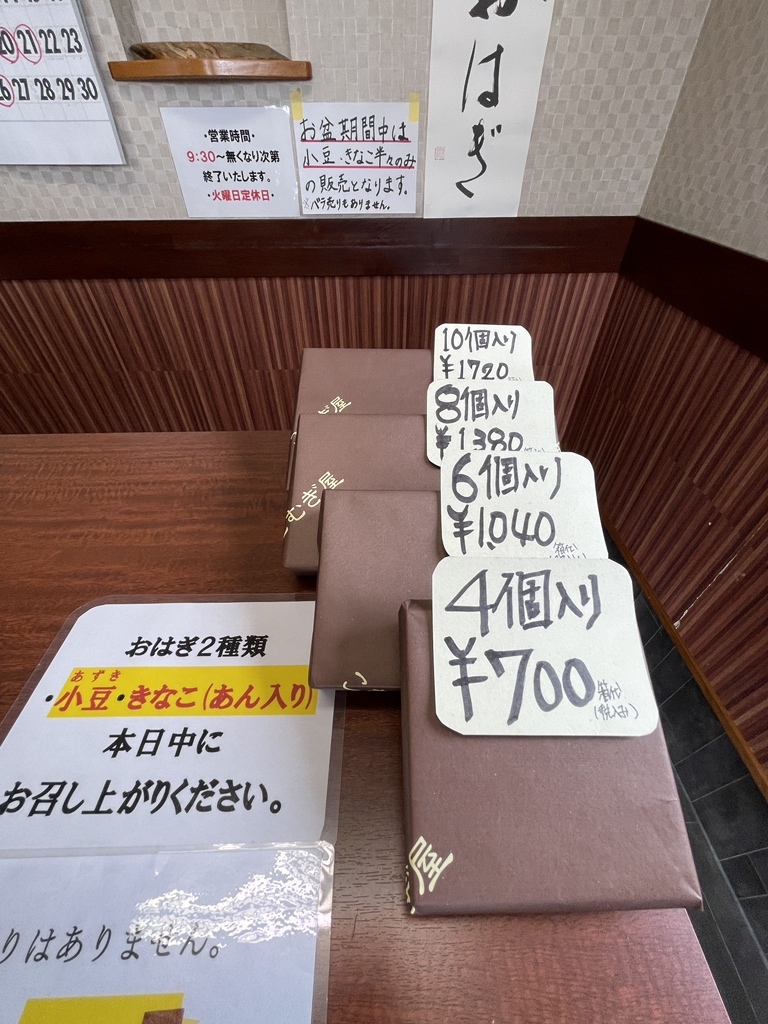 20 21 22 23
26 27 28 29 30
・営業時間・
9:30～無くなり次第
終了いたします。
・火曜日定休日・
お盆期間中は
小豆・きなこ半々のみ
の販売となります。
※バラ売りもありません。
おはぎ
10個入り
¥1720
8個入り
¥1380
6個入り
¥1,040
箱代
4個入り
¥700
箱代
(税込み)
ぎ屋
むぎ屋
屋
おはぎ2種類
あずき
・小豆・きなこ(あん入り)
本日中に
お召し上がりください。
りはありません。